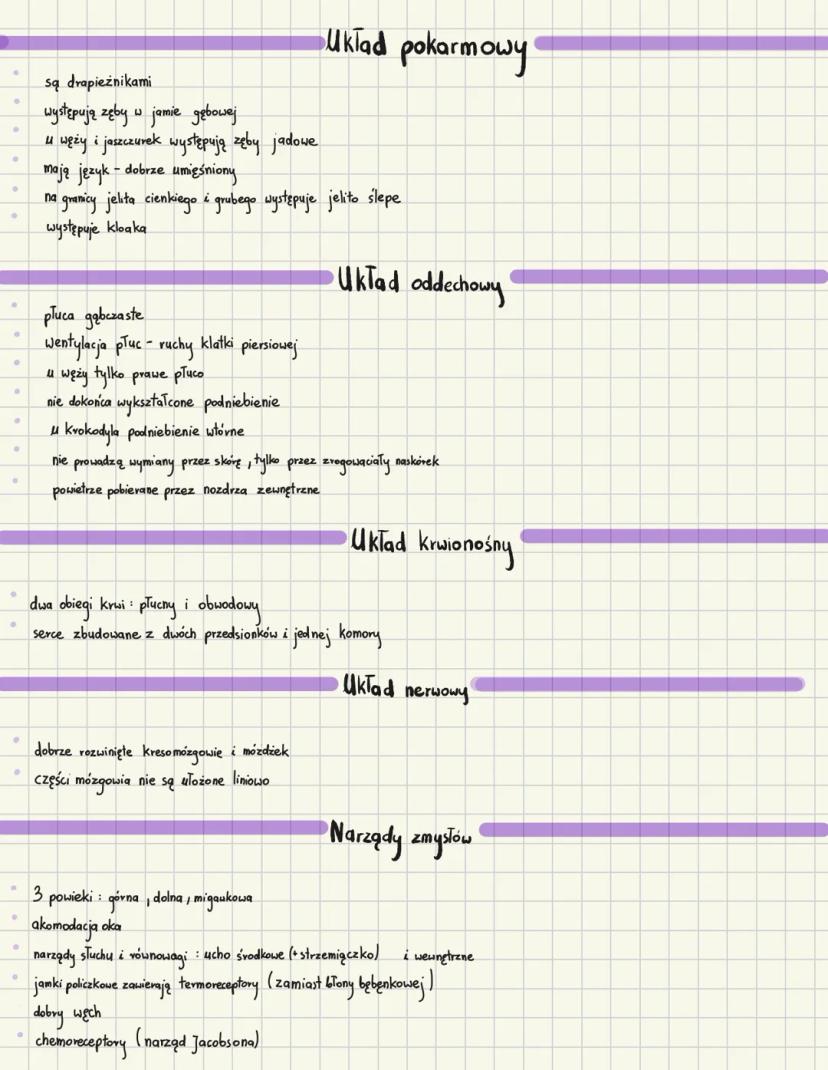 Układ pokarmowy
są drapieżnikami
występują zęby w jamie gębowej
u węży i jaszczurek występują zęby jadowe
mają język - dobrze umięśniony
na granicy jelita cienkiego i grubego występuje jelito ślepe
występuje kloaka
Układ oddechowy
płuca gąbczaste
wentylacja płuc - ruchy klatki piersiowej
u węży tylko prawe płuco
nie dokońca wykształcone podniebienie
u krokodyla podniebienie wtórne
nie prowadzą wymiany przez skórę, tylko przez zrogowaciały naskórek
powietrze pobierane przez nozdrza zewnętrzne
Układ krwionośny
dwa obiegi krwi : płucny i obwodowy
serce zbudowane z dwóch przedsionków i jednej komory
Układ nerwowy
dobrze rozwinięte kresomózgowie i móżdżek
części mózgowia nie są ułożone liniowo
Narządy zmysłów
3 powieki : górna , dolna , migaukowa
akomodacja oka
narządy słuchu i równowagi : ucho środkowe (+ strzemiączko) i wewnętrzne
jamki policzkowe zawierają termoreceptory (zamiast błony bębenkowej)
dobry węch
chemoreceptory (narząd Jacobsona)